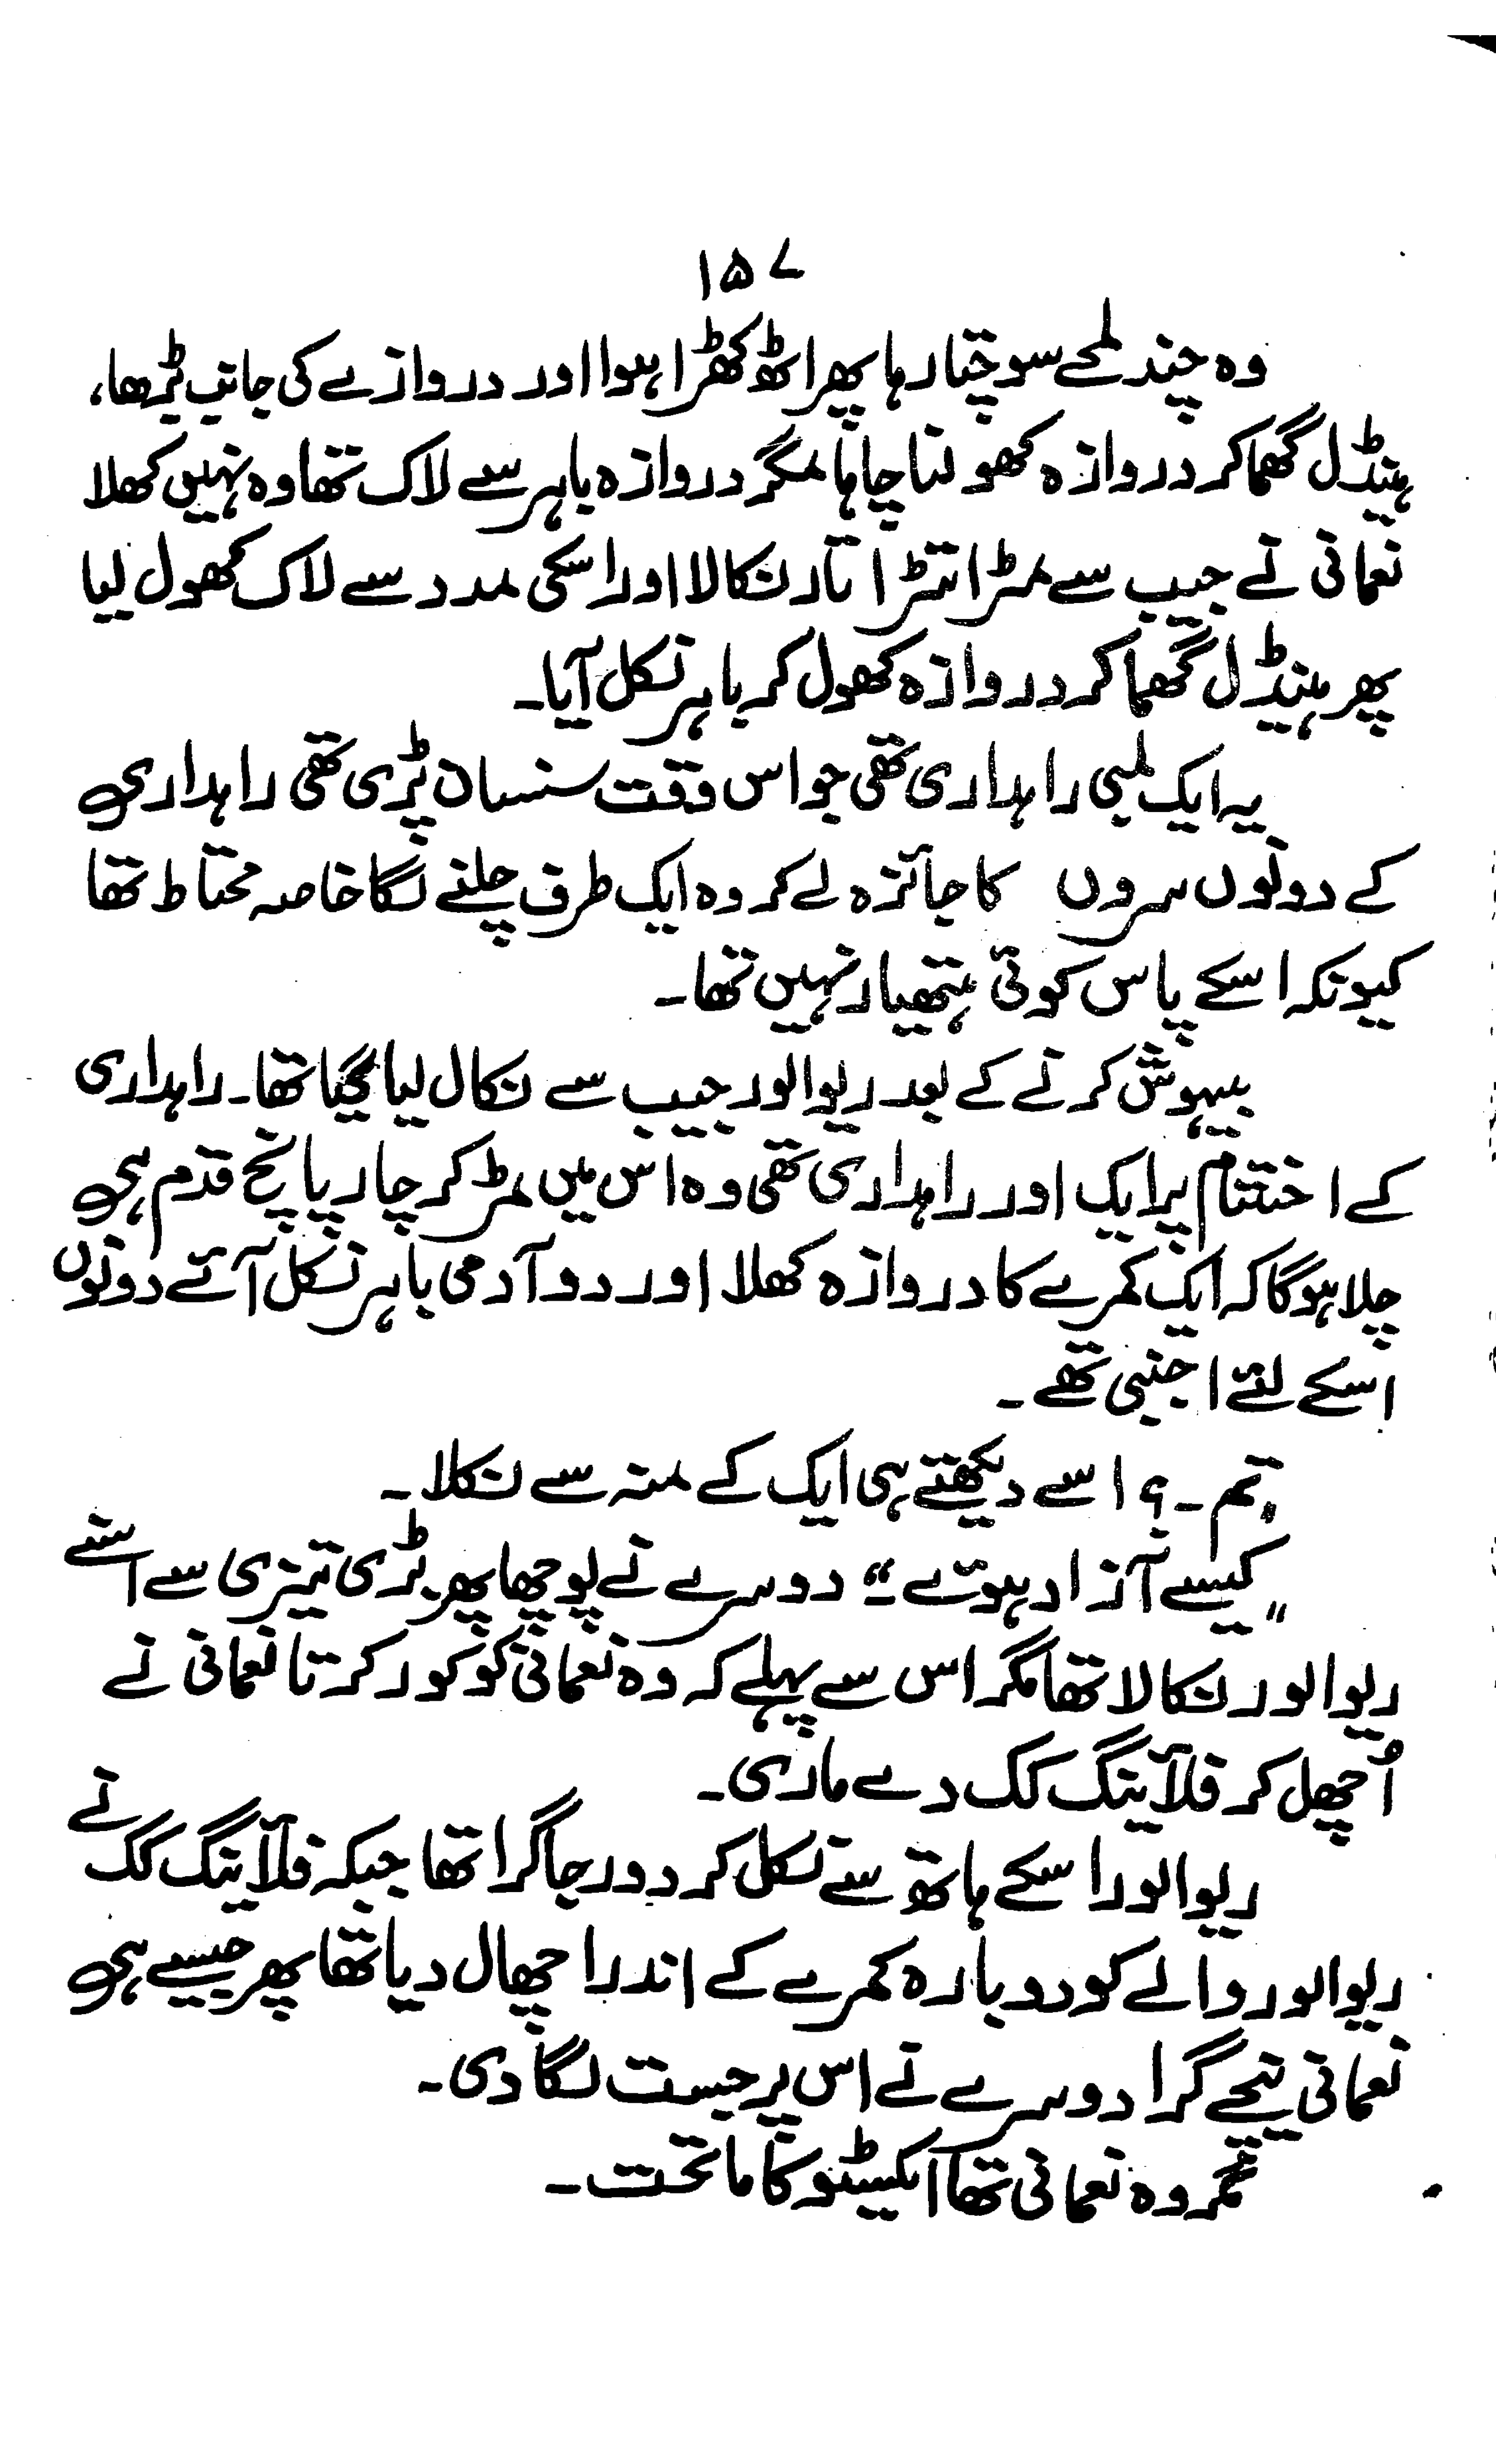 ۱۵۷
وہ چند لمحے سوچتا رہا پھر اٹھ کھڑا ہوا اور دروازے کی جانب بڑھا،
ہینڈل گھما کر دروازہ کھولنا چاہا مگر دروازہ باہر سے لاک تھا وہ نہیں کھلا
نعمانی نے جیب سے مڑا تڑا تار نکالا اور اسکی مدد سے لاک کھول لیا
پھر ہینڈل گھما کر دروازہ کھول کر باہر نکل آیا۔
یہ ایک لمبی راہداری تھی جو اس وقت سنسان پڑی تھی راہداری
کے دونوں سروں کا جائزہ لے کر وہ ایک طرف چلنے لگا خاصہ محتاط تھا
کیونکہ اسکے پاس کوئی ہتھیار نہیں تھا۔
بیہوش کرنے کے بعد ریوالور جیب سے نکال لیا گیا تھا۔ راہداری
کے اختتام پر ایک اور راہداری تھی وہ اس میں مڑ کر چار پانچ قدم ہی
چلا ہوگا کہ ایک کمرے کا دروازہ کھلا اور دو آدمی باہر نکل آئے دونوں
اسکے لئے اجنبی تھے۔
تم۔؟ اسے دیکھتے ہی ایک کے منہ سے نکلا۔
"کیسے آزاد ہوئے۔" دوسرے نے پوچھا پھر بڑی تیزی سے اسنے
ریوالور نکالا تھا مگر اس سے پہلے کہ وہ نعمانی کو کور کرتا نعمانی نے
اُچھل کر فلائینگ کک دے ماری۔
ریوالور اسکے ہاتھ سے نکل کر دور جا گرا تھا جبکہ فلائینگ کک نے
ریوالور والے کو دوبارہ کمرے کے اندر اچھال دیا تھا پھر جیسے ہی
نعمانی نیچے گرا دوسرے نے اس پر جست لگا دی۔
مگر وہ نعمانی تھا ایکسٹو کا ماتحت۔